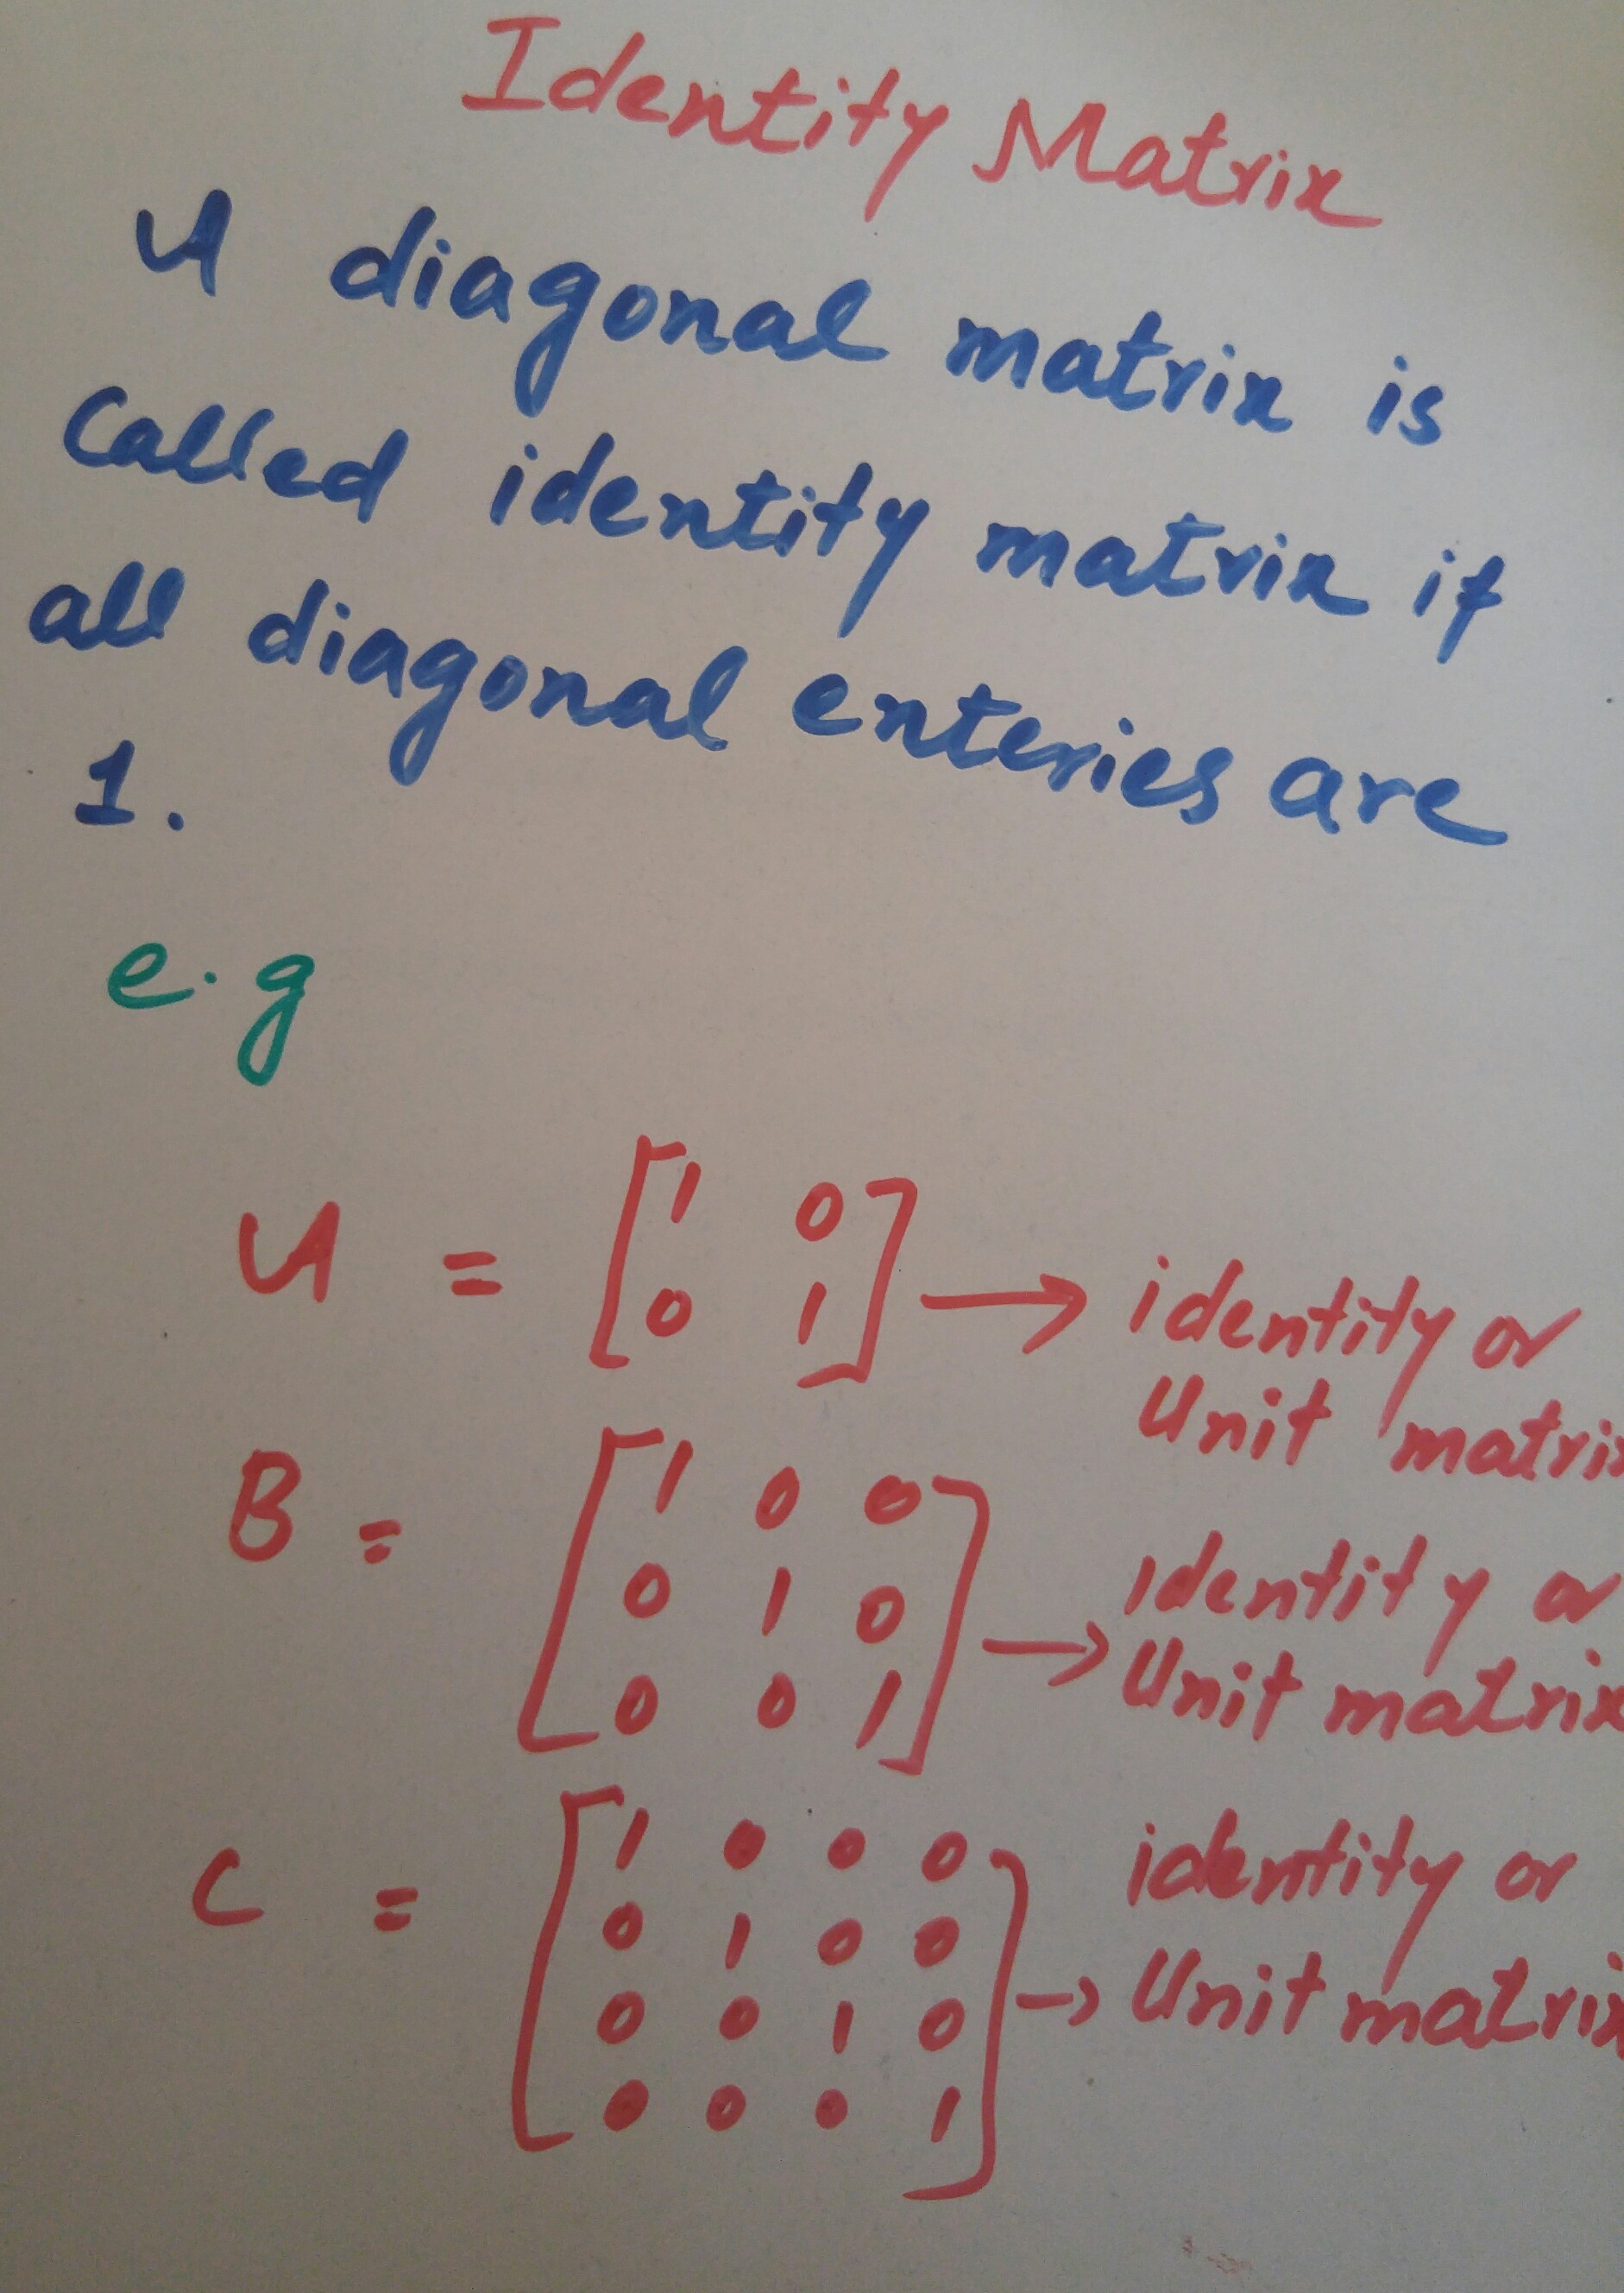 Identity Matrix
A diagonal matrix is
Called identity matrix if
all diagonal enteries are
1.
e.g
A = [1 0
0 1] → identity or
Unit matrix
B = [1 0 0
0 1 0
0 0 1] → identity or
Unit matrix
C = [1 0 0 0
0 1 0 0
0 0 1 0
0 0 0 1] → identity or
Unit matrix